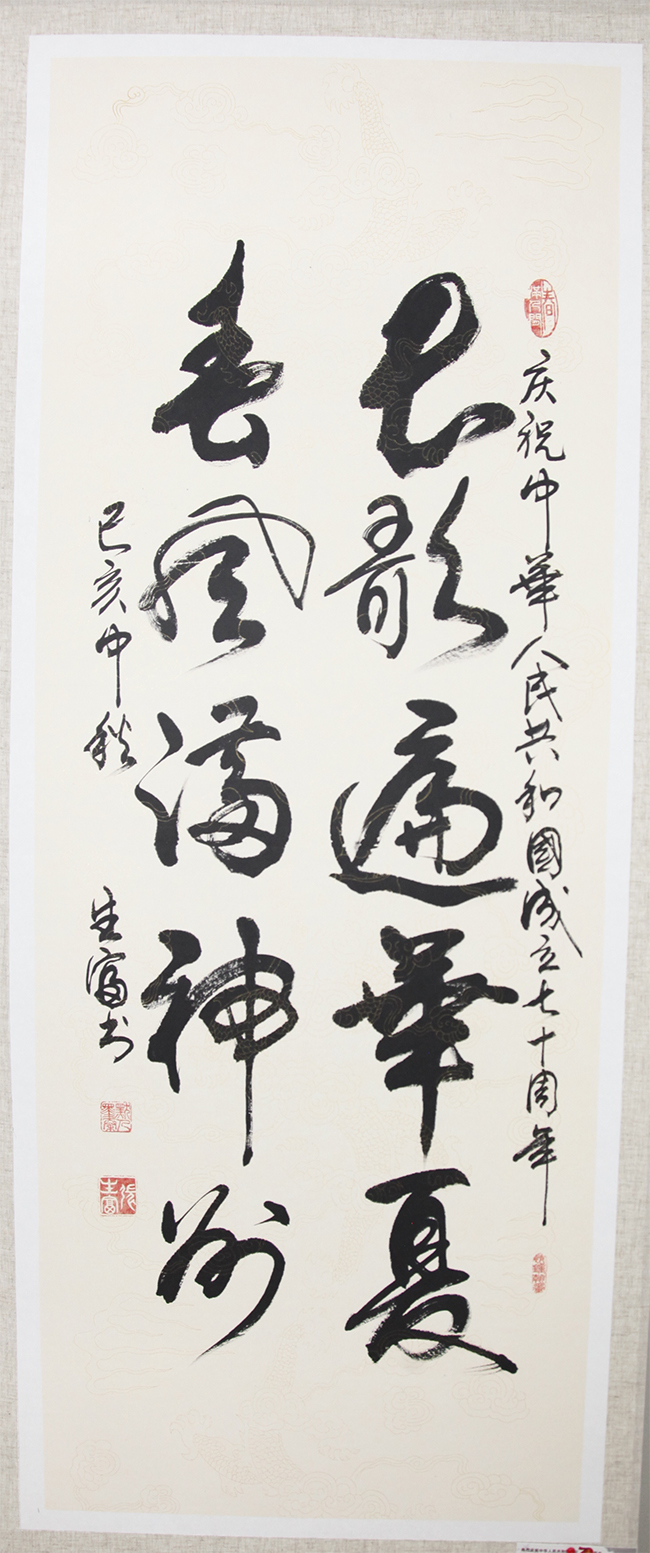 庆祝中華人民共和國成立七十周年
长歌遍華夏
春风满神州
己亥中秋
生富书
張生富